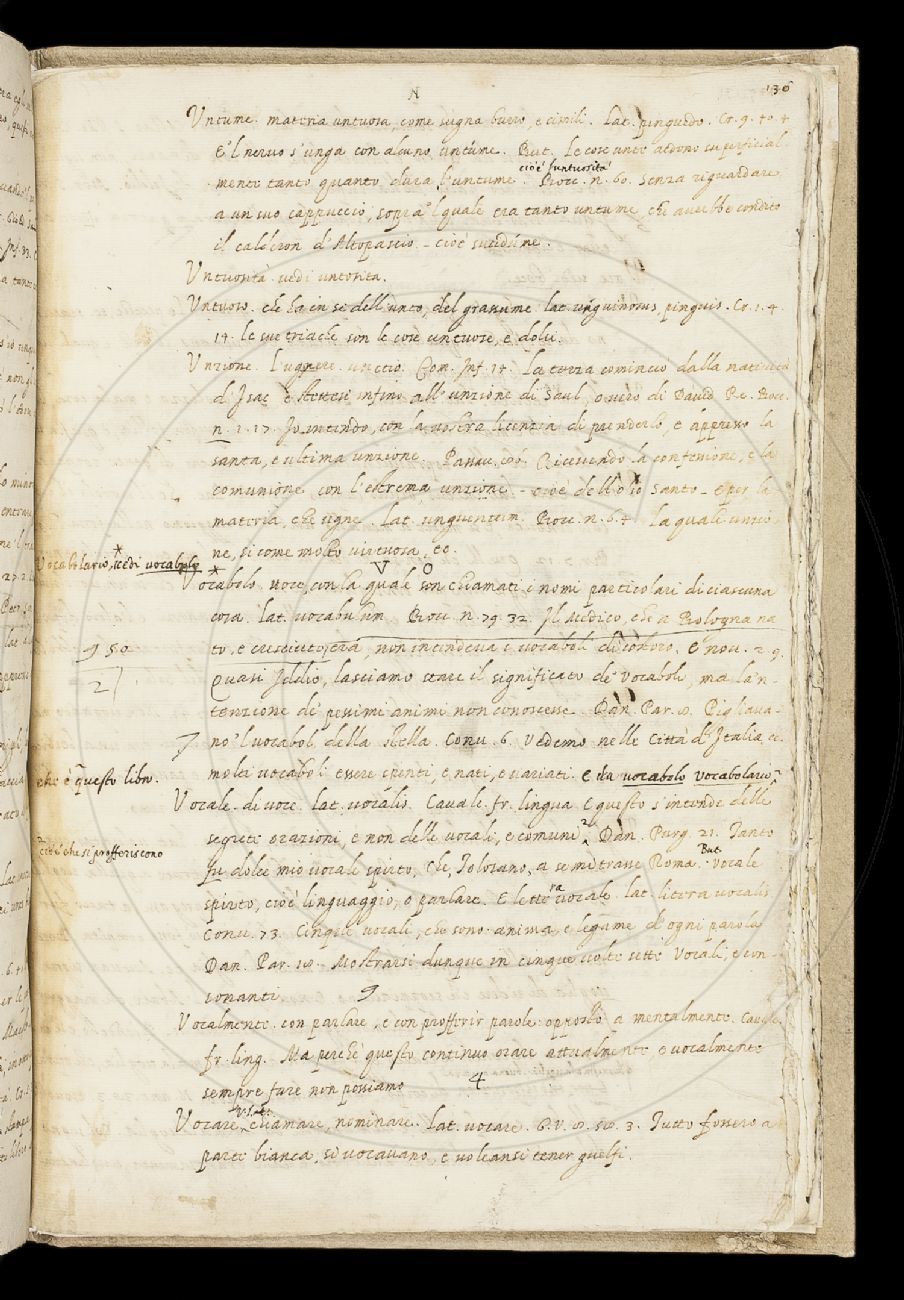 N
136
Untume. materia untuosa, come sugna burro, e simili. Lat. pinguedo. Cr. 9. 40. 4
E 'l nervo s'unga con alcuno untume. But. le cose unte ardono superficial-
mente tanto quanto dura l'untume. cioè l'untuosità Bocc. n. 60. Senza riguardare
a un suo cappuccio, sopra 'l quale era tanto untume, che avrebbe condito
il calderon d'Altopascio. cioè sucidume.
Untuosità. vedi untosità.
Untuoso. che ha in se dell'unto, del grassume. lat. unguinosus, pinguis. Cr. 1. 4.
14. le sue triache son le cose untuose, e dolci.
Unzione. l'ugnere. unctio. Com. Inf. 14. La terza cominciò dalla natività
d'Isac e stettesi infino all'unzione di Saul, overo di David Re. Bocc.
n. 1. 17. Io intendo, con la vostra licenzia di prenderlo, e appresso la
santa, e ultima unzione. Passav. 106. Ricevendo la confessione, e la
comunione con l'estrema unzione - cioè dell'olio santo - e per la
materia, che ugne. Lat. unguentum. Bocc. n. 64. la quale unzio
ne, si come molto virtuosa, ec.
Vocabolario, * vedi vocabolo
V O
Vocabolo * voce, con la quale son chiamati i nomi particolari di ciascuna
cosa. lat. vocabulum. Bocc. n. 79. 32. Il medico, che a Bologna na
to, e cresciuto era, non intendeva i vocaboli di costoro. E nov. 2. 9.
Quasi Iddio, lasciamo stare il significato de' vocaboli, ma la 'n-
tenzione de' pessimi animi non conoscesse. Dan. Par. 8. Pigliava-
no 'l vocabol della stella. Conv. 6. Vedemo nelle Città d'Italia, ec.
molti vocaboli essere spenti, e nati, e variati. E da vocabolo vocabolario,
che è questo libro.
Vocale. di voce. lat. vocalis. Cavalc. fr. lingua. E questo s'intende delle
segrete orazioni, e non delle vocali, e comuni. 2 Dan. Purg. 21. Tanto
2 cioè che si profferiscono
fu dolce mio vocale spirto, Che, Tolosano, a se mi trasse Roma. But. Vocale
spirto, cioè linguaggio, o parlare. E lettera vocale. lat. litera vocalis
Conv. 73. Cinque vocali, che sono anima, e legame d'ogni parola
Dan. Par. 18. Mostrarsi dunque in cinque volte sette Vocali, e con-
sonanti. 9
Vocalmente. con parlare, e con profferir parole: opposto a mentalmente. Cavalc.
fr. ling. Ma perchè questo continuo orare attualmente, e vocalmente
sempre fare non possiamo. 4
Vocare, chiamare, nominare. Lat. vocare. G. V. 8. 3. Tutto fossero a
parte bianca, si vocavano, e voleansi tener guelfi.